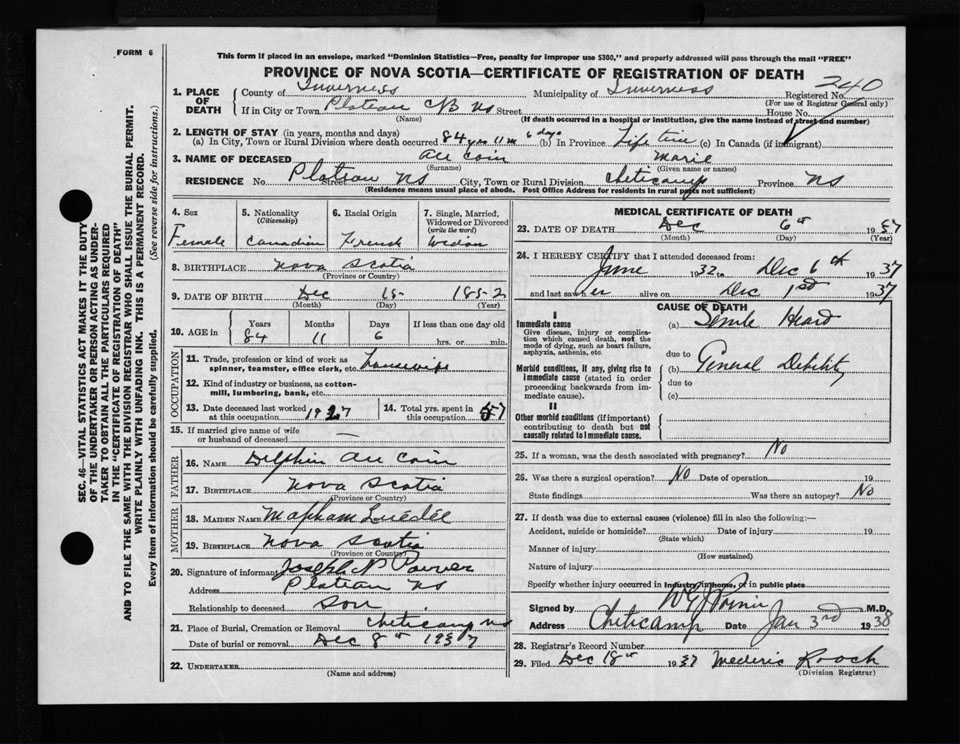 FORM 6
This form if placed in an envelope, marked "Dominion Statistics—Free, penalty for improper use $300," and properly addressed will pass through the mail "FREE"
PROVINCE OF NOVA SCOTIA—CERTIFICATE OF REGISTRATION OF DEATH
240
1. PLACE OF DEATH
County of Inverness Municipality of Inverness Registered No.
(For use of Registrar General only)
If in City or Town Plateau CB NS Street House No.
(Name) (If death occurred in a hospital or institution, give the name instead of street and number)
2. LENGTH OF STAY (in years, months and days)
(a) In City, Town or Rural Division where death occurred 84 yrs 11 m 6 days (b) In Province Life time (c) In Canada (if immigrant)
3. NAME OF DECEASED Au Coin Marie
(Surname) (Given name or names)
RESIDENCE No. Plateau NS Street City, Town or Rural Division Cheticamp Province NS
(Residence means usual place of abode. Post Office Address for residents in rural parts not sufficient)
4. Sex
Female
5. Nationality
(Citizenship)
Canadian
6. Racial Origin
French
7. Single, Married, Widowed or Divorced
(write the word)
Widow
8. BIRTHPLACE Nova Scotia
(Province or Country)
9. DATE OF BIRTH Dec 15 1852
(Month) (Day) (Year)
10. AGE in
Years Months Days If less than one day old
84 11 6 hrs. or min.
OCCUPATION
11. Trade, profession or kind of work as
spinner, teamster, office clerk, etc. Housewife
12. Kind of industry or business, as cotton-
mill, lumbering, bank, etc.
13. Date deceased last worked
at this occupation 1927
14. Total yrs. spent in
this occupation 57
15. If married give name of wife
or husband of deceased —
FATHER
16. NAME Delphin Au Coin
17. BIRTHPLACE Nova Scotia
(Province or Country)
MOTHER
18. MAIDEN NAME
19. BIRTHPLACE Nova Scotia
(Province or Country)
20. Signature of informant Joseph N
Address Plateau NS
Relationship to deceased Son
21. Place of Burial, Cremation or Removal Cheticamp NS
Date of burial or removal Dec 8th 1937
22. UNDERTAKER
(Name and address)
MEDICAL CERTIFICATE OF DEATH
23. DATE OF DEATH Dec 6th 1937
(Month) (Day) (Year)
24. I HEREBY CERTIFY that I attended deceased from:
June 1932 to Dec 6th 1937
and last saw her alive on Dec 1st 1937
CAUSE OF DEATH
I
Immediate cause
Give disease, injury or complica-
tion which caused death, not the
mode of dying, such as heart failure,
asphyxia, asthenia, etc.
(a) Senile Heart
due to
Morbid conditions, if any, giving rise to
immediate cause (stated in order
proceeding backwards from im-
mediate cause).
(b) General Debility
due to
(c)
II
Other morbid conditions (if important)
contributing to death but not
causally related to immediate cause.
25. If a woman, was the death associated with pregnancy? No
26. Was there a surgical operation? No Date of operation 19
State findings Was there an autopsy? No
27. If death was due to external causes (violence) fill in also the following:—
Accident, suicide or homicide? Date of injury 19
(State which)
Manner of injury
(How sustained)
Nature of injury
Specify whether injury occurred in industry, in home, or in public place
Signed by M.D.
Address Cheticamp Date Jan 3rd 1938
28. Registrar's Record Number
29. Filed Dec 18th 1937 Mederic Rooch
(Division Registrar)
SEC. 46—VITAL STATISTICS ACT MAKES IT THE DUTY
OF THE UNDERTAKER OR PERSON ACTING AS UNDER-
TAKER TO OBTAIN ALL THE PARTICULARS REQUIRED
IN THE "CERTIFICATE OF REGISTRATION OF DEATH"
AND TO FILE THE SAME WITH THE DIVISION REGISTRAR WHO SHALL ISSUE THE BURIAL PERMIT.
WRITE PLAINLY WITH UNFADING INK. THIS IS A PERMANENT RECORD.
Every item of information should be carefully supplied. (See reverse side for instructions.)